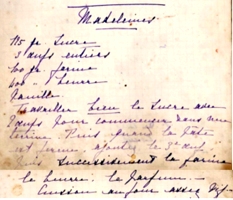 Madeleines
115 gr Sucre
3 œufs entiers
100 gr farine
100 " beurre
Vanille
Travailler bien le Sucre avec
2 œufs pour commencer dans une
terrine Puis quand la pâte
est ferme, ajoutez le 3e œuf
Puis Successivement la farine
le beurre. le parfum —
Cuisson au four assez vif